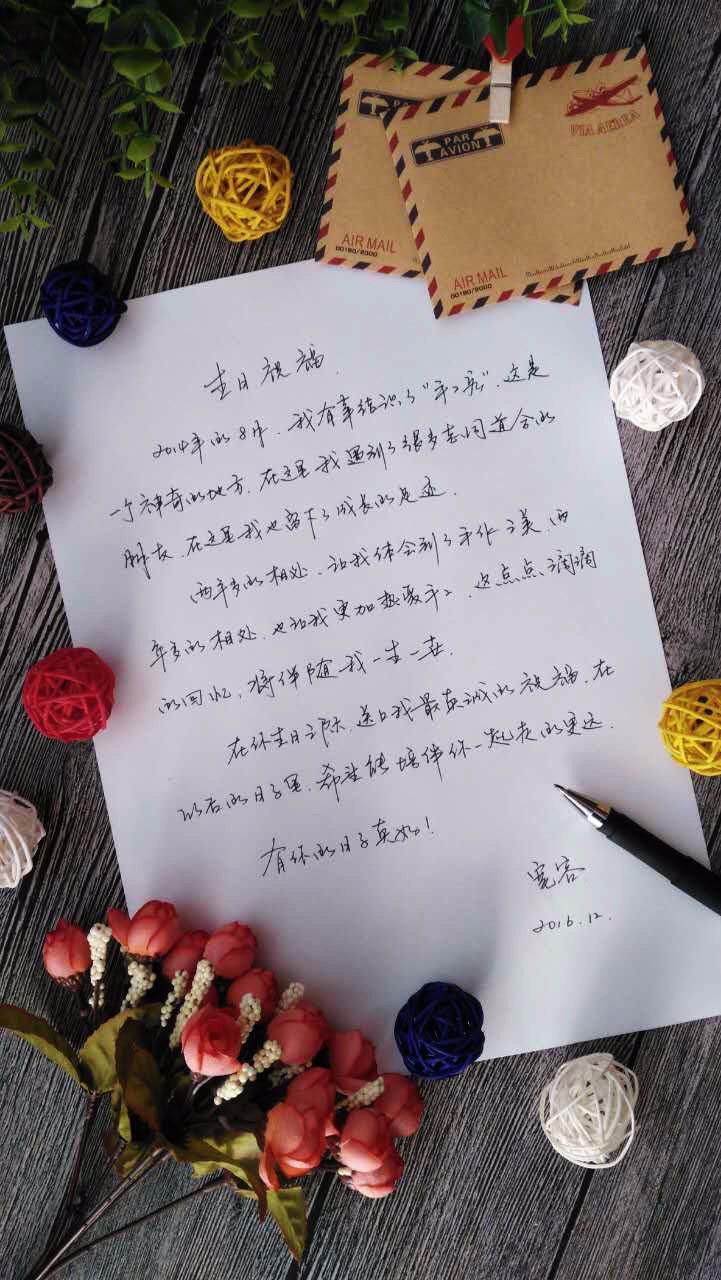 PAR
AVION
VIA AEREA
AIR MAIL
00180/2000
PAR
AVION
AIR MAIL
00180/2000
生日祝福
2014年的8月,我有幸结识了“手工客”,这是
一个神奇的地方,在这里我遇到了很多志同道合的
朋友,在这里我也留下了成长的足迹.
两年多的相处,让我体会到了手作之美,两
年多的相处,也让我更加热爱手工,这点点滴滴
的回忆,将伴随我一生一世.
在你生日之际,送上我最真诚的祝福,在
以后的日子里,希望能陪伴你一起走的更远.
有你的日子真好!
2016.12.